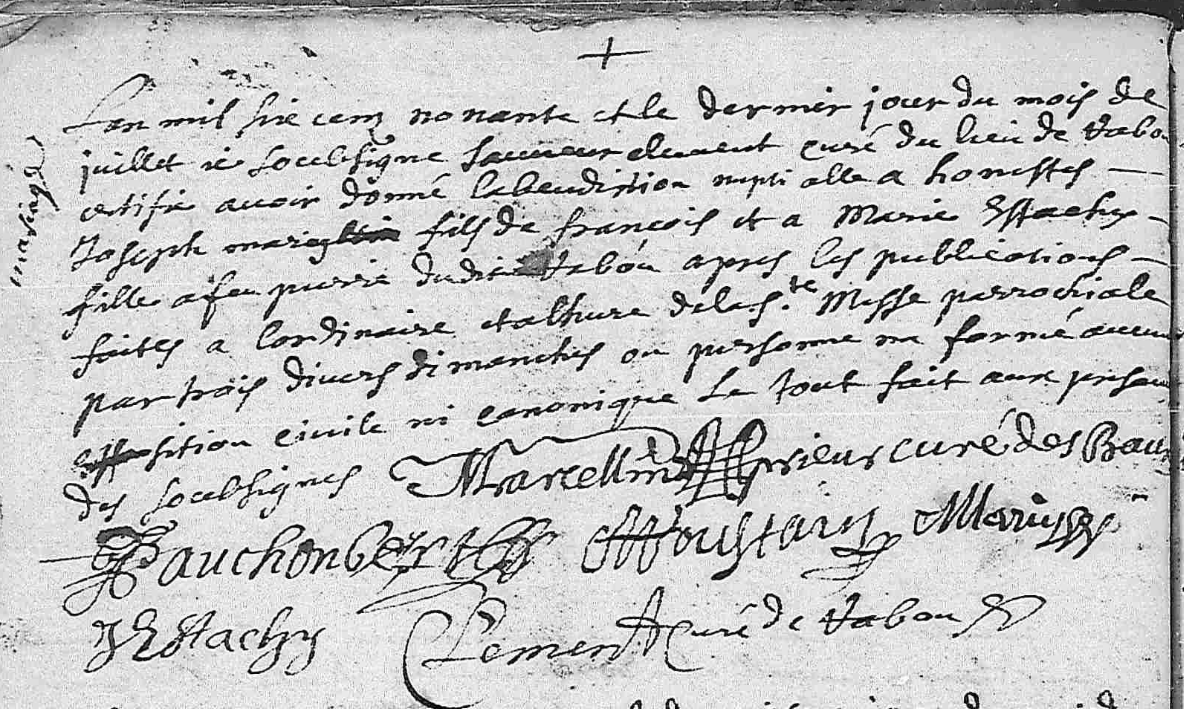 +
mariage
Lan mil sixcens nonante et le dernier jour du mois de
juillet ie soubsigne sauveur clement curé du lieu de Vabou
certifie avoir donné la bendiction nuptialle a honestes
Joseph fils de francois et a Marie Estachy
fille a feu pierre dudit Vabou apres les publications
faites a lordinaire et a lheure de la s.te Messe parrochiale
par trois divers dimanches ou personne na formé aucune
opposition civile ni canonique Le tout fait aux presances
des soubsignes Marcellin prieur curé des Baux
Pauchonbert Moustairy
J Estachy Clement Curé de Vabou